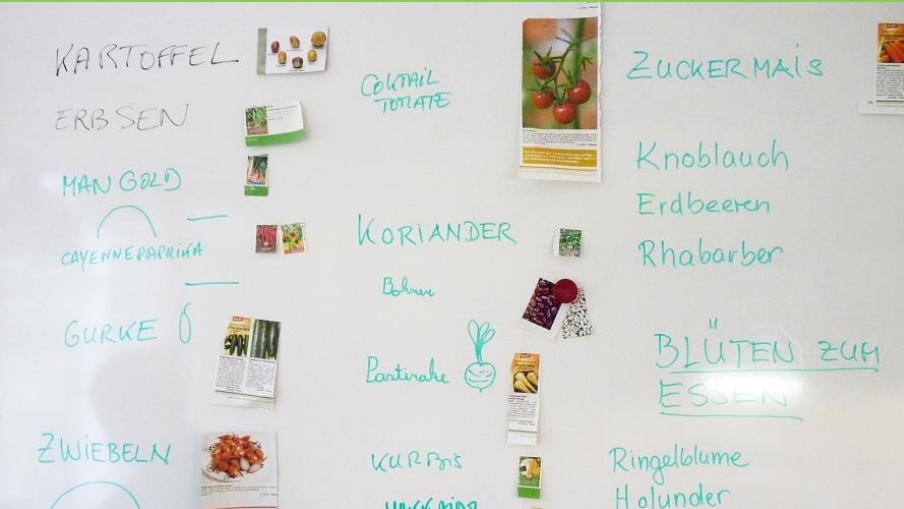 KARTOFFEL
ERBSEN
MANGOLD
CAYENNEPAPRIKA
GURKE
ZWIEBELN
COKTAIL
TOMATE
KORIANDER
Bohnen
Pastinake
KÜRBIS
ZUCKERMAIS
Knoblauch
Erdbeeren
Rhabarber
BLÜTEN ZUM
ESSEN
Ringelblume
Holunder